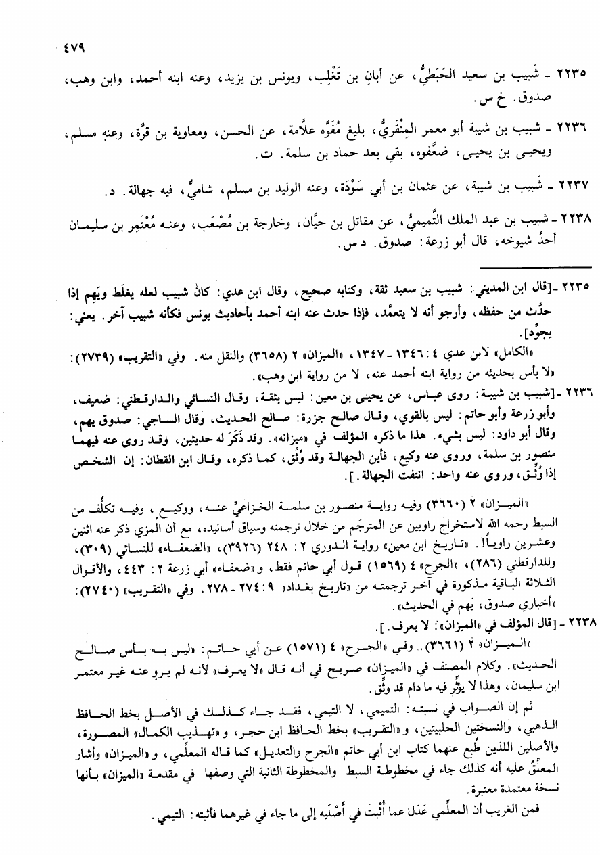 ٤٧٩
٢٢٣٥ - شَبيب بن سعيد الحَبَطيُّ، عن أبان بن تَغْلِب، ويونس بن يزيد، وعنه ابنه أحمد، وابن وهب،
صدوق. خ س.
٢٢٣٦ - شبيب بن شيبة أبو معمر المِنْقَريُّ، بليغ مُفَوَّه علَّامة، عن الحسن، ومعاوية بن قرَّة، وعنه مسلم،
ويحيى بن يحيى، ضعَّفوه، بقي بعد حماد بن سلمة. ت.
٢٢٣٧ - شَبيب بن شيبة، عن عثمان بن أبي سَوْدَة، وعنه الوليد بن مسلم، شاميٌّ، فيه جهالة. د.
٢٢٣٨ - شبيب بن عبد الملك التَّميميُّ، عن مقاتل بن حيَّان، وخارجة بن مُصْعَب، وعنه مُعْتَمِر بن سليمان
أحدُ شيوخه، قال أبو زرعة: صدوق. د س.
٢٢٣٥ - [قال ابن المديني: شبيب بن سعيد ثقة، وكتابه صحيح، وقال ابن عدي: كان شبيب لعله يغلَط ويَهِم إذا
حدَّث من حفظه، وأرجو أنه لا يتعمَّد، فإذا حدث عنه ابنه أحمد بأحاديث يونس فكأنه شبيب آخر. يعني:
يجوِّد].
«الكامل» لابن عدي ٤: ١٣٤٦ - ١٣٤٧، «الميزان» ٢ (٣٦٥٨) والنقل منه. وفي «التقريب» (٢٧٣٩):
«لا بأس بحديثه من رواية ابنه أحمد عنه، لا من رواية ابن وهب».
٢٢٣٦ - [شبيب بن شيبة: روى عباس، عن يحيى بن معين: ليس بثقة، وقال النسائي والدارقطني: ضعيف،
وأبو زرعة وأبو حاتم: ليس بالقوي، وقال صالح جزرة: صالح الحديث، وقال الساجي: صدوق يهم،
وقال أبو داود: ليس بشيء. هذا ما ذكره المؤلف في «ميزانه». وقد ذَكَرَ له حديثين، وقد روى عنه فيهما
منصور بن سلمة، وروى عنه وكيع، فأين الجهالة وقد وُثِّق، كما ذكره، وقال ابن القطان: إن الشخص
إذا وُثِّق، وروى عنه واحد: انتفت الجهالة.].
«الميزان» ٢ (٣٦٦٠) وفيه رواية منصور بن سلمة الخزاعيِّ عنه، ووكيع، وفيه تكلُّف من
السبط رحمه الله لاستخراج راويين عن المترجَم من خلال ترجمته وسياق أسانيده، مع أن المزي ذكر عنه اثنين
وعشرين راوياً!. «تاريخ ابن معين» رواية الدوري ٢: ٢٤٨ (٣٩٢٦)، «الضعفاء» للنسائي (٣٠٩)،
وللدارقطني (٢٨٦)، «الجرح» ٤ (١٥٦٩) قول أبي حاتم فقط، و«ضعفاء» أبي زرعة ٢: ٤٤٣، والأقوال
الثلاثة الباقية مذكورة في آخر ترجمته من «تاريخ بغداد» ٩: ٢٧٤ - ٢٧٨. وفي «التقريب» (٢٧٤٠):
«أخباري صدوق، يَهِم في الحديث».
٢٢٣٨ - [قال المؤلف في «الميزان»: لا يعرف.].
«الميزان» ٢ (٣٦٦١).. وفي «الجرح» ٤ (١٥٧١) عن أبي حاتم: «ليس به بأس صالح
الحديث». وكلام المصنف في «الميزان» صريح في أنه قال «لا يعرف» لأنه لم يرو عنه غير معتمر
ابن سليمان، وهذا لا يؤثِّر فيه ما دام قد وثِّق.
ثم إن الصواب في نسبته: التميمي، لا التيمي، فقد جاء كذلك في الأصل بخط الحافظ
الذهبي، والنسختين الحلبيتين، و«التقريب» بخط الحافظ ابن حجر، و«تهذيب الكمال» المصورة،
والأصلين اللذين طُبع عنهما كتاب ابن أبي حاتم «الجرح والتعديل» كما قاله المعلِّمي، و«الميزان» وأشار
المعلِّقُ عليه أنه كذلك جاء في مخطوطة السبط والمخطوطة الثانية التي وصفها في مقدمة «الميزان» بأنها
نسخة معتمدة معتبرة.
فمن الغريب أن المعلِّمي عَدَل عما أُثبتَ في أَصْلَيه إلى ما جاء في غيرهما فأثبته: التيمي.